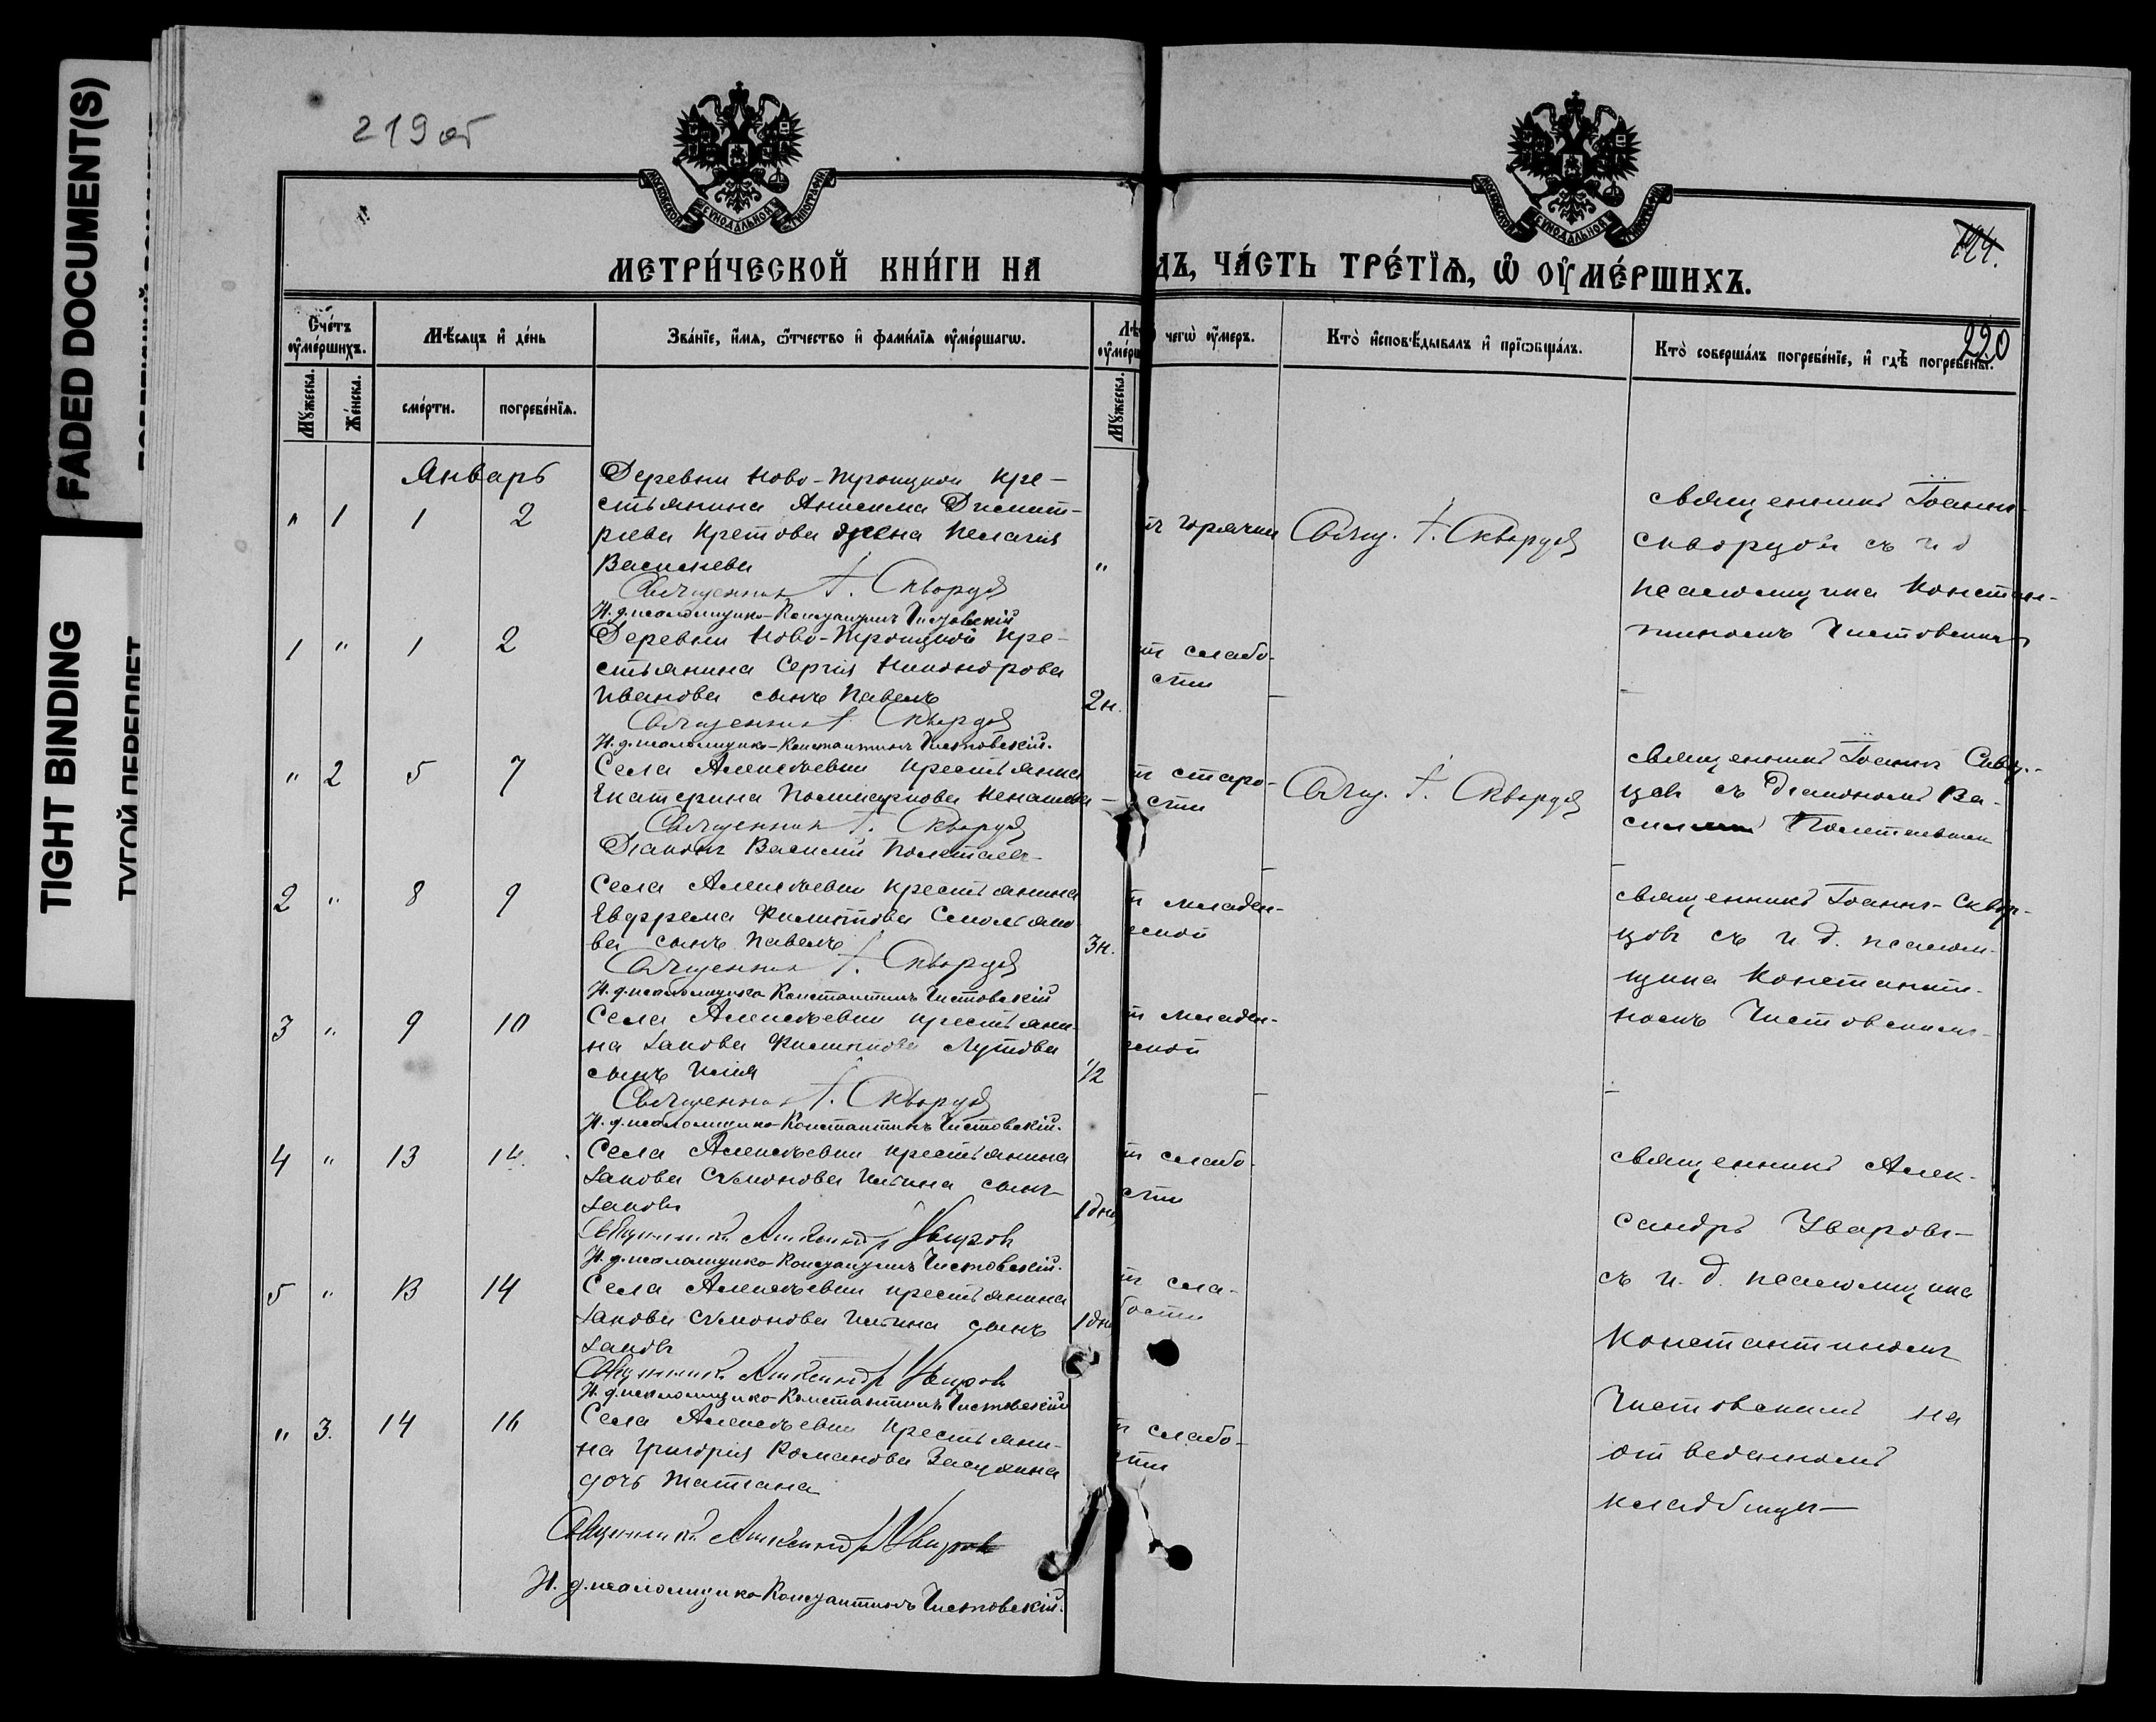 FADED DOCUMENT(S)
TIGHT BINDING
ТУГОЙ ПЕРЕПЛЕТ
219 об
194.
220
МОСКОВСКОЙ СѴНОДАЛЬНОЙ ТИПОГРАФІИ
МОСКОВСКОЙ СѴНОДАЛЬНОЙ ТИПОГРАФІИ
МЕТРИ́ЧЕСКОЙ КНИ́ГИ НА
ДЪ, ЧА́СТЬ ТРЕ́ТЇѦ, Ѡ ОУМЕ́РШИХЪ.
Сче́тъ оуме́ршихъ.
Мѣсяцъ и де́нь
Зва́нїе, и́мѧ, ѻтчество и фами́лїѧ оуме́ршагѡ.
Лѣ
оуме́рш
чегѡ оу́меръ.
Кто̀ исповѣ́дывалъ и прїѡбща́лъ.
Кто̀ соверша́лъ погребе́нїе, и гдѣ̀ погребены̀.
Мꙋ́жеска.
Же́нска.
сме́рти.
погребе́нїѧ.
Мꙋ́жеска.
Январь
" 1 1 2
Деревни Ново-Троицкой кре-
стьянина Анисима Дмит-
риева Кретова жена Пелагия
Васильева "
Священник І. Скворцов
И. д. псаломщика Константинъ Чистовскій
тъ горячки
Свящ. І. Скворцов
священникъ Іоаннъ
Скворцовъ съ и д
псаломщика Констан-
тиномъ Чистовскимъ
1 " 1 2
Деревни Ново-Троицкой кре-
стьянина Сергія Никонорова
Иванова сынъ Павелъ 2н.
Священник І. Скворцов
И. д. псаломщика-Константинъ Чистовскій.
тъ слабо-
сти
" 2 5 7
Села Алексѣевки крестьянка
Екатерина Поликарпова Ненашева
Священник І. Скворцов
Діаконъ Василий Полетаевъ
тъ старо-
сти
Свящ. І. Скворцов
священникъ Іоаннъ Сквор-
цовъ съ Діакономъ Ва-
Полетаевым
2 " 8 9
Села Алексѣевки крестьянина
Филиппова Смольяно-
ва сынъ Павелъ 3н.
Священник І. Скворцов
И. д. псаломщика Константинъ Чистовскій
ъ младен-
еской
священникъ Іоаннъ Сквор-
цовъ съ и д. псалом-
щика Константи-
номъ Чистовскимъ
3 " 9 10
Села Алексѣевки крестьяни-
на Іакова Филиппова Лутова
сынъ Илия 1/2
Священник І. Скворцов
И. д. псаломщика-Константинъ Чистовскій.
тъ младен-
еской
4 " 13 14
Села Алексѣевки крестьянина
Іакова Симонова Ильина сынъ
Іаковъ 1 дня
Священникъ Александръ Уваровъ
И. д. псаломщика-Константинъ Чистовскій.
тъ слабо-
сти
священникъ Алек-
сандръ Уваровъ
съ и. д. псаломщика
Константиномъ
Чистовскимъ на
отведенномъ
кладбищѣ
5 " 13 14
Села Алексѣевки крестьянина
Іакова Симонова Ильина сынъ
Іаковъ 1 дня
Священникъ Александръ Уваровъ
И. д. псаломщика-Константинъ Чистовскій
тъ сла-
бости
" 3. 14 16
Села Алексѣевки крестьяни-
на Григорія Романова
дочь Татіана
Священникъ Александръ Уваровъ
И. д. псаломщика-Константинъ Чистовскій.
тъ слабо-
сти